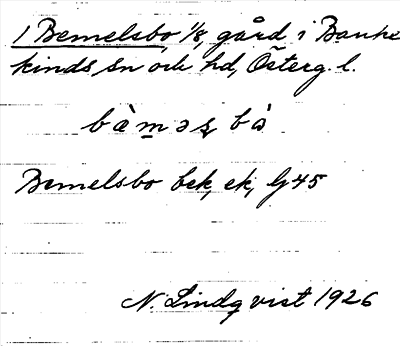 1 Bemelsbo, 1/8, gård i Banke
kinds sn och hd, Österg. l.
bàməs̨ bà
Bemelsbo bek, ek, G45
N. Lindqvist 1926